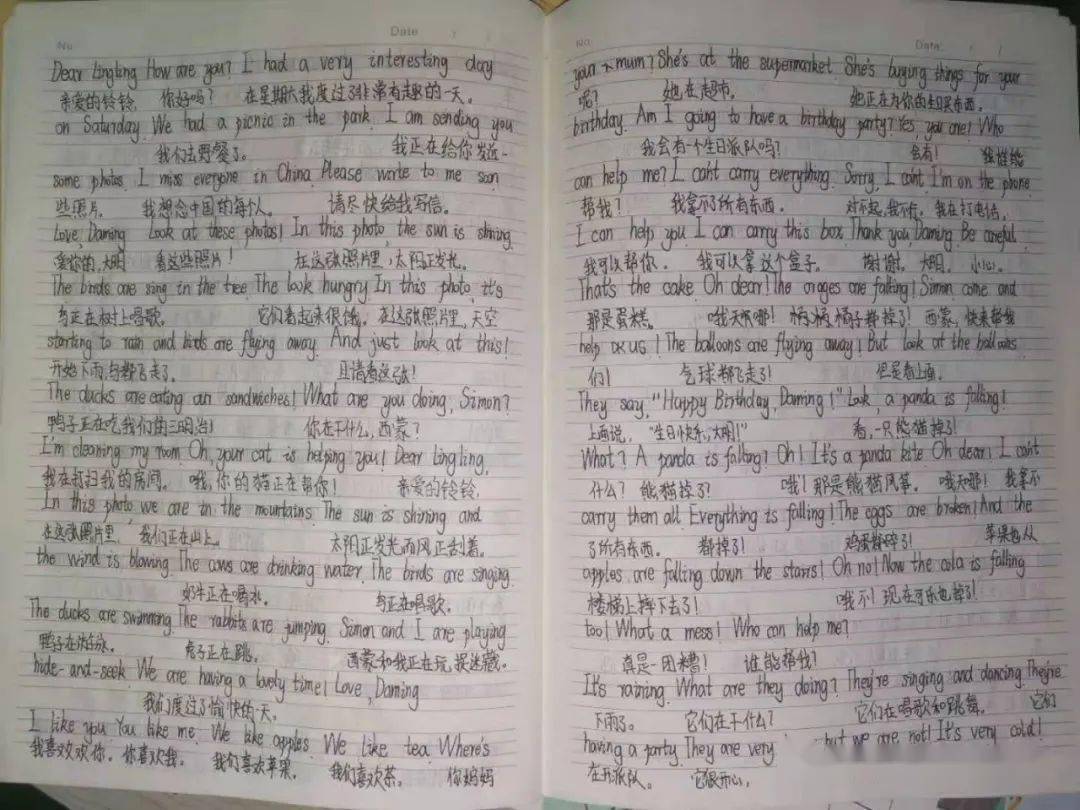 No.
Date
Dear Lingling How are you? I had a very interesting day
亲爱的铃铃, 你好吗? 在星期六我度过了非常有趣的一天。
on Saturday. We had a picnic in the park. I am sending you
我们去野餐了。 我正在给你发送一
some photos. I miss everyone in China. Please write to me soon
些照片。 我想念中国的每个人。 请尽快给我写信。
Love, Daming Look at these photos! In this photo, the sun is shining.
爱你的,大明 看这些照片! 在这张照片里,太阳正发光。
The birds are sing in the tree. The look hungry. In this photo, it's
鸟正在树上唱歌。 它们看起来很饿。在这张照片里,天空
starting to rain and birds are flying away. And just look at this!
开始下雨,鸟都飞走了。 且请看这张!
The ducks are eating our sandwiches! What are you doing, Simon?
鸭子正在吃我们的三明治! 你在干什么,西蒙?
I'm cleaning my room. Oh, your cat is helping you! Dear Lingling,
我在打扫我的房间。 哦,你的猫正在帮你! 亲爱的铃铃,
In this photo we are in the mountains. The sun is shining and
在这张照片里,我们正在山上。 太阳正发光而风正刮着。
the wind is blowing. The cows are drinking water. The birds are singing.
奶牛正在喝水。 鸟正在唱歌。
The ducks are swimming. The rabbits are jumping. Simon and I are playing
鸭子在游泳。 兔子正在跳。 西蒙和我正在玩,捉迷藏。
hide-and-seek. We are having a lovely time! Love, Daming
我们度过了愉快的一天。
I like you. You like me. We like apples. We like tea. Where's
我喜欢你。你喜欢我。 我们喜欢苹果。 我们喜欢茶。 你妈妈
No.
Date
your mum? She's at the supermarket. She's buying things for your
呢? 她在超市。 她正在为你的生日买东西。
birthday. Am I going to have a birthday party? Yes, you are! Who
我会有一个生日派队吗? 会有! 谁能
can help me? I can't carry everything. Sorry, I can't. I'm on the phone
帮我? 我拿不了所有东西。 对不起,我不行。我在打电话。
I can help you. I can carry this box. Thank you, Daming. Be careful.
我可以帮你。 我可以拿这个盒子。 谢谢,大明。小心。
That's the cake. Oh dear! The oranges are falling! Simon come and
那是蛋糕。 哦天哪! 橘子都掉了! 西蒙,快来帮我
help us! The balloons are flying away! But look at the balloons.
们! 气球都飞走了! 但是看上面。
They say, "Happy Birthday, Daming!" Look, a panda is falling!
上面说,“生日快乐,大明!” 看,一只熊猫掉了!
What? A panda is falling? Oh! It's a panda kite. Oh dear! I can't
什么? 熊猫掉了? 哦! 那是熊猫风筝。 哦天哪! 我拿不
carry them all. Everything is falling! The eggs are broken! And the
了所有东西。 都掉了! 鸡蛋都碎了! 苹果也从
apples are falling down the stairs! Oh no! Now the cola is falling
楼梯上摔下去了! 哦不! 现在可乐也掉了!
too! What a mess! Who can help me?
真是一团糟! 谁能帮我?
It's raining. What are they doing? They're singing and dancing. They're
下雨了。 它们在干什么? 它们在唱歌和跳舞。 它们
having a party. They are very but we are not! It's very cold!
在开派队。 它很开心,